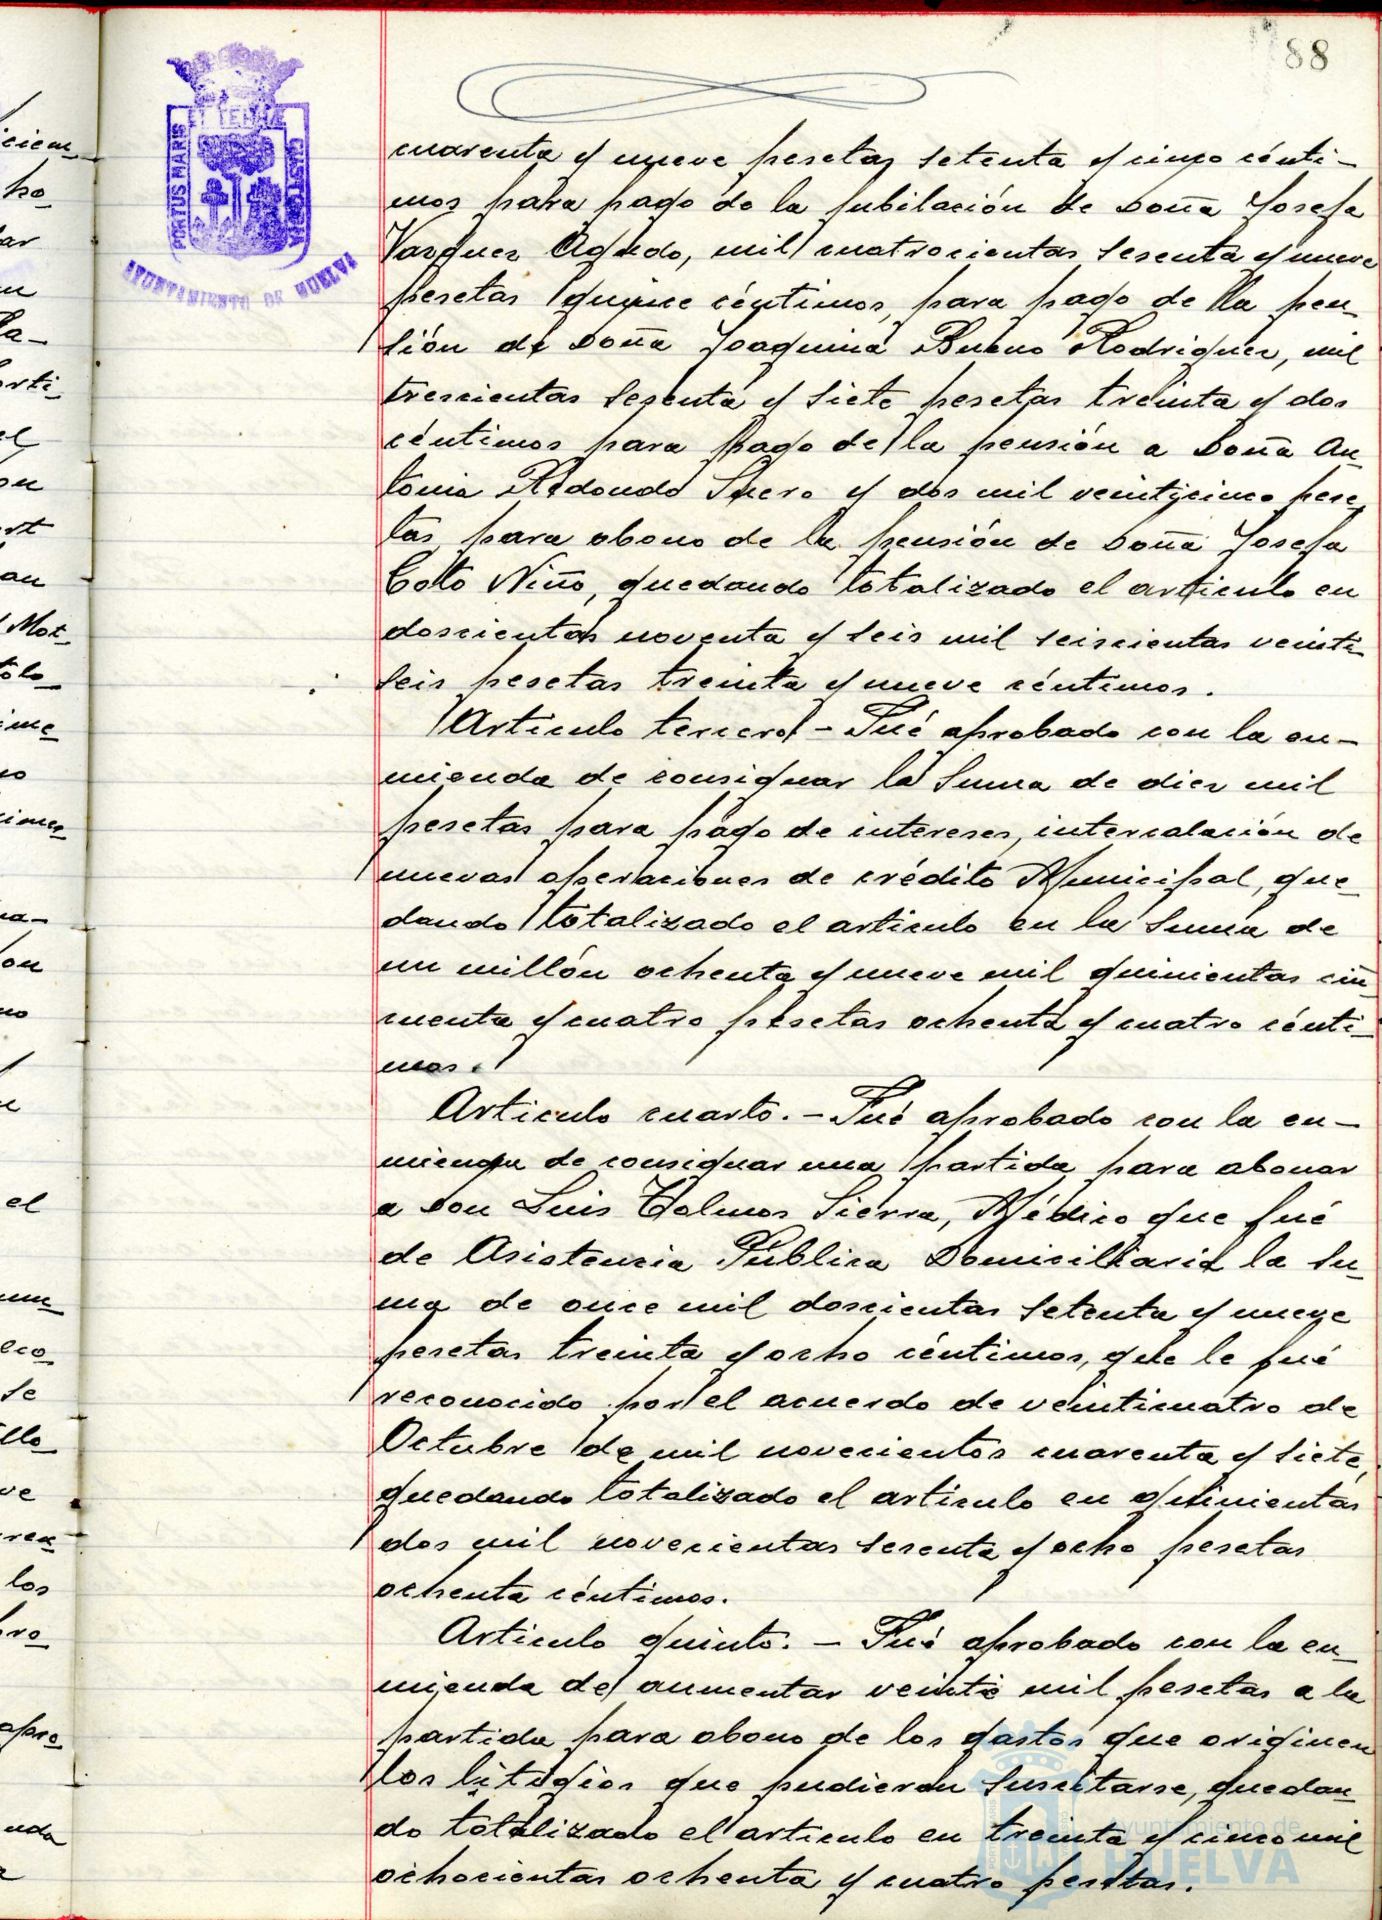 88
PORTUS MARIS ET TERRÆ CUSTODIA
AYUNTAMIENTO DE HUELVA
cuarenta y nueve pesetas setenta y cinco cénti-
mos para pago de la jubilación de Doña Josefa
Vazquez Agudo, mil cuatrocientas sesenta y nueve
pesetas quince céntimos, para pago de la pen-
sión de Doña Joaquina Bueno Rodriguez, mil
trescientas sesenta y siete pesetas treinta y dos
céntimos para pago de la pensión a Doña An-
tonia Redondo Suero y dos mil veinticinco pese-
tas para abono de la pensión de Doña Josefa
Coto Niño, quedando totalizado el articulo en
doscientas noventa y seis mil seiscientas veinti-
seis pesetas treinta y nueve céntimos.
Articulo tercero - Fué aprobado con la en-
mienda de consignar la suma de diez mil
pesetas para pago de intereses, intercalación de
nuevas operaciones de crédito Municipal, que-
dando totalizado el articulo en la suma de
un millón ochenta y nueve mil quinientas cin-
cuenta y cuatro pesetas ochenta y cuatro cénti-
mos.
Articulo cuarto. - Fué aprobado con la en-
mienda de consignar una partida para abonar
a Don Luis Tolmos Sierra, Médico que fué
de Asistencia Pública Domiciliaria la su-
ma de once mil doscientas setenta y nueve
pesetas treinta y ocho céntimos, que le fué
reconocido por el acuerdo de veinticuatro de
Octubre de mil novecientos cuarenta y siete,
quedando totalizado el articulo en quinientas
dos mil novecientas sesenta y ocho pesetas
ochenta céntimos.
Articulo quinto. - Fué aprobado con la en-
mienda de aumentar veinte mil pesetas a la
partida para abono de los gastos que originen
los litigios que pudieran suscitarse, quedan-
do totalizado el articulo en treinta y cinco mil
ochocientas ochenta y cuatro pesetas.
Ayuntamiento de
HUELVA